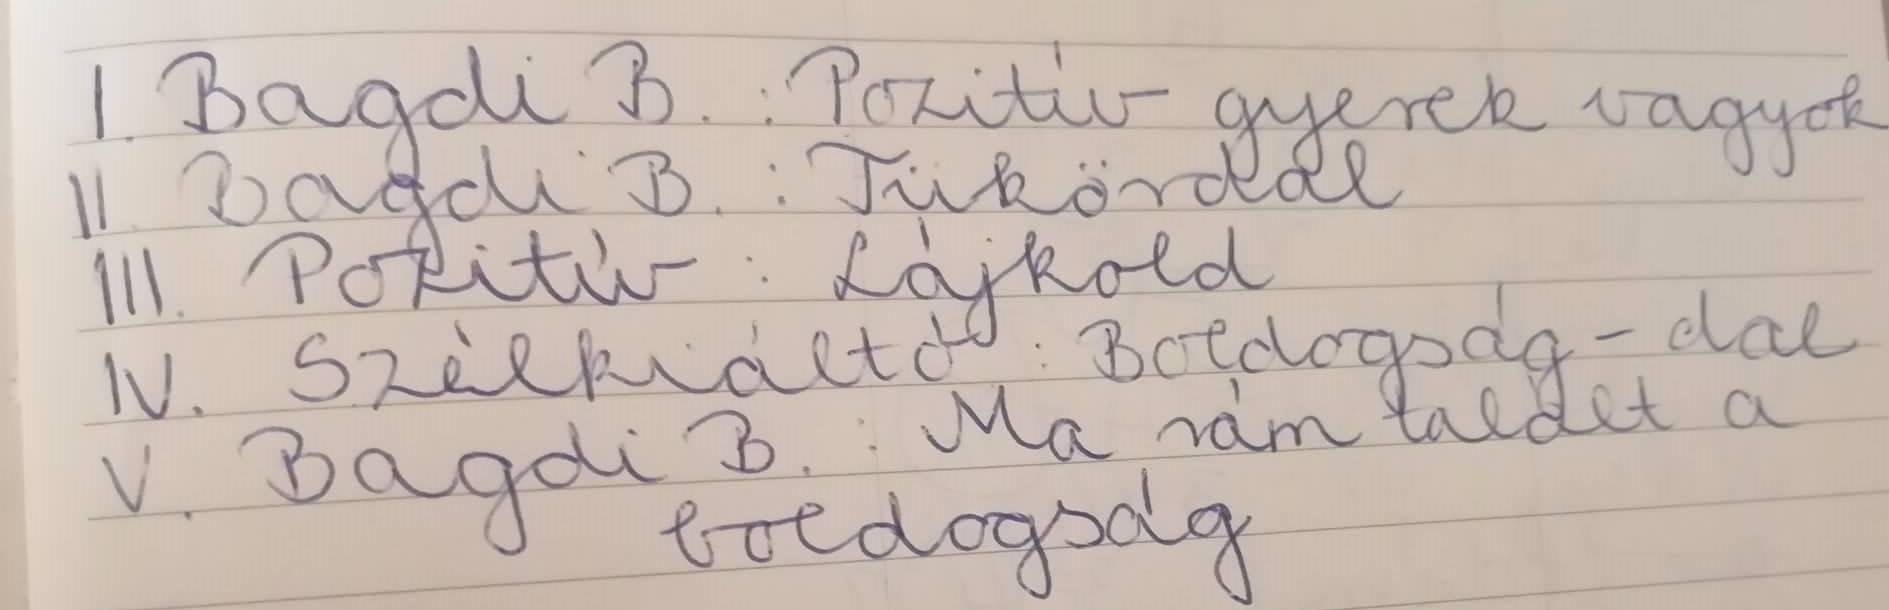 I. Bagdi B. : Pozitív gyerek vagyok
II. Bagdi B. : Tükördal
III. Pozitív : Lájkold
IV. Szélkiáltó : Boldogság-dal
V. Bagdi B. : Ma rám talált a
boldogság